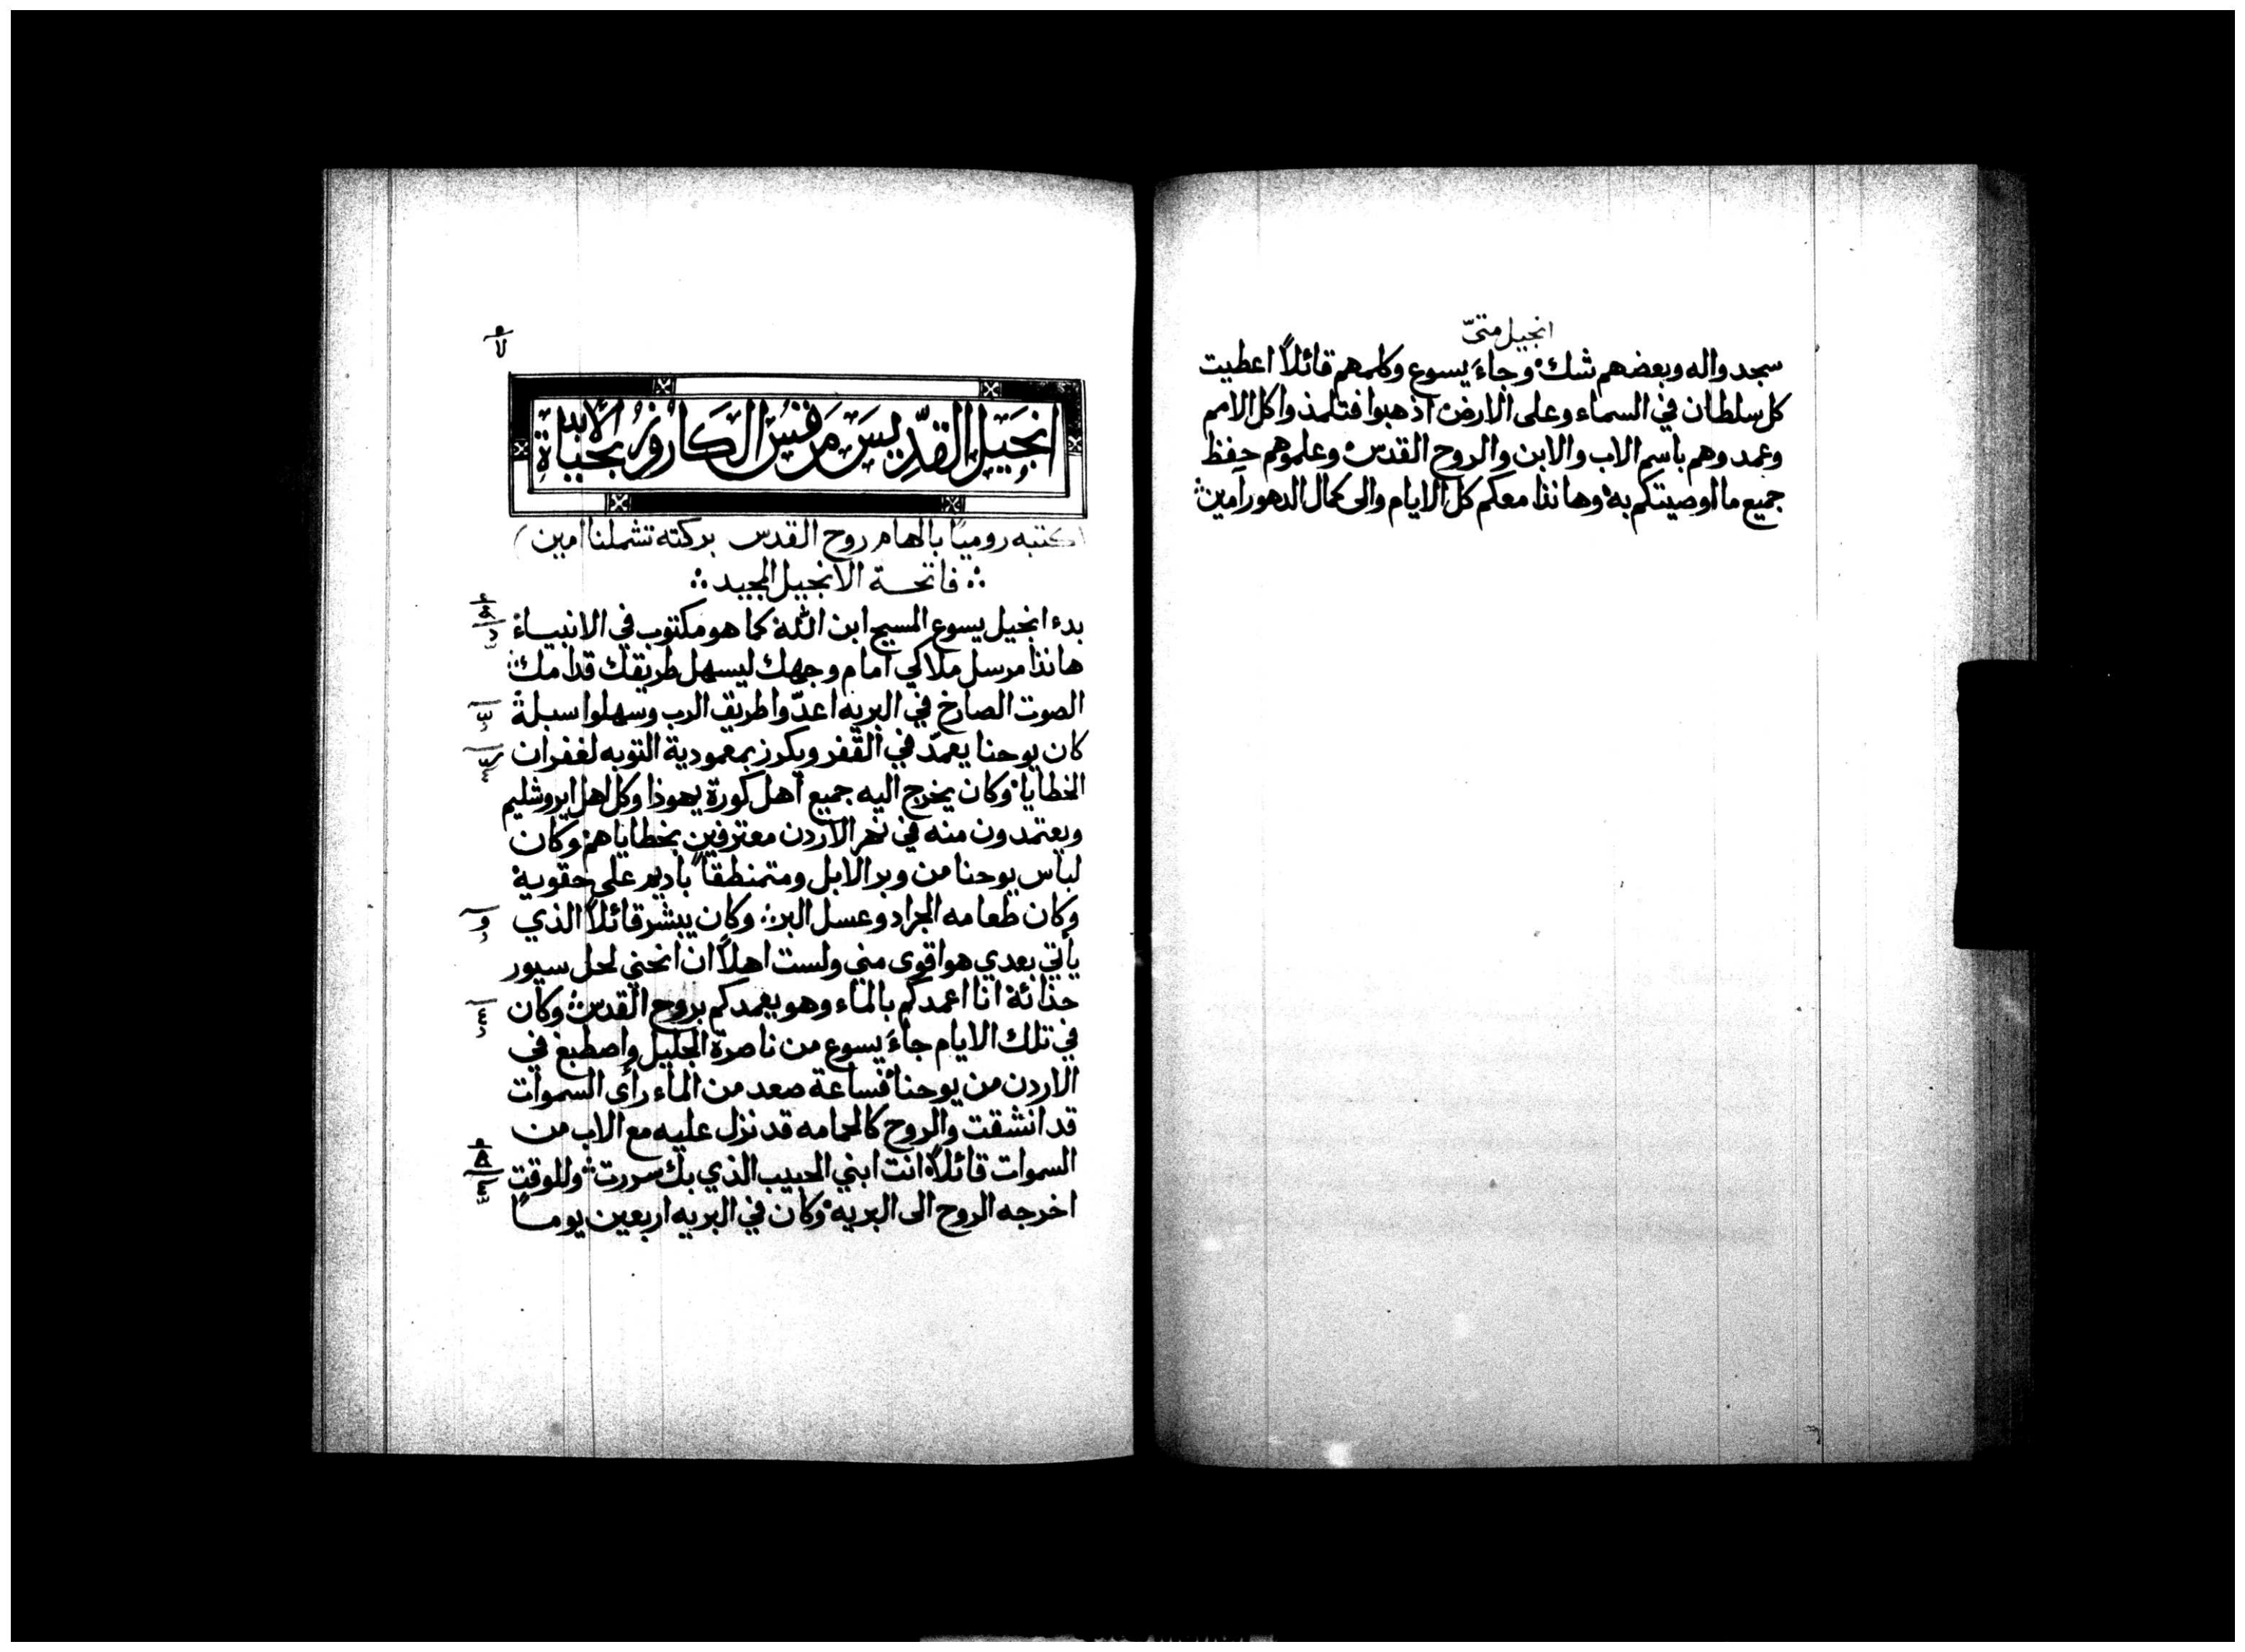 انجيل متىّ
سجدواله وبعضهم شك وجاءَ يسوع وكلمهم قائلاً اعطيت
كل سلطان في السماء وعلى الارض اذهبوا فتلمذوا كل الامم
وعمدوهم باسم الاب والابن والروح القدس وعلموهم حفظ
جميع ما اوصيتكم به وهانذا معكم كل الايام والى كمال الدهور آمين
انجيل القدّيس مرقس الكاروز بحياة الابد
اكتتبه روميًا بالهام روح القدس بركته تشملنا امين
فاتحة الانجيل المجيد
بدء انجيل يسوع المسيح ابن الله كما هو مكتوب في الانبياء
هانذا مرسل ملاكي امام وجهك ليسهل طريقك قدامك
الصوت الصارخ في البريه اعدّوا طريق الرب وسهلوا سبلة
كان يوحنا يعمدّ في القفر ويكرز بمعمودية التوبه لغفران
الخطايا وكان يخرج اليه جميع اهل كورة يهوذا وكل اهل ايروشليم
ويعتمدون منه في نهر الاردن معترفين بخطاياهم وكان
لباس يوحنا من وبر الابل ومتمنطقاً باديم على حقوية
وكان طعامه الجراد وعسل البر وكان يبشر قائلاً الذي
يأتي بعدي هو اقوى مني ولست اهلاً ان انحني لحل سيور
حذائة انا اعمدكم بالماء وهو يعمدكم بروح القدس وكان
في تلك الايام جاءَ يسوع من ناصرة الجليل واصطبغ في
الاردن من يوحنا فساعة صعد من الماء رأى السموات
قد انشقت والروح كالحمامه قد نزل عليه مع الاب من
السموات قائلاً انت ابني الحبيب الذي بك سررت وللوقت
اخرجه الروح الى البريه وكان في البريه اربعين يوماً